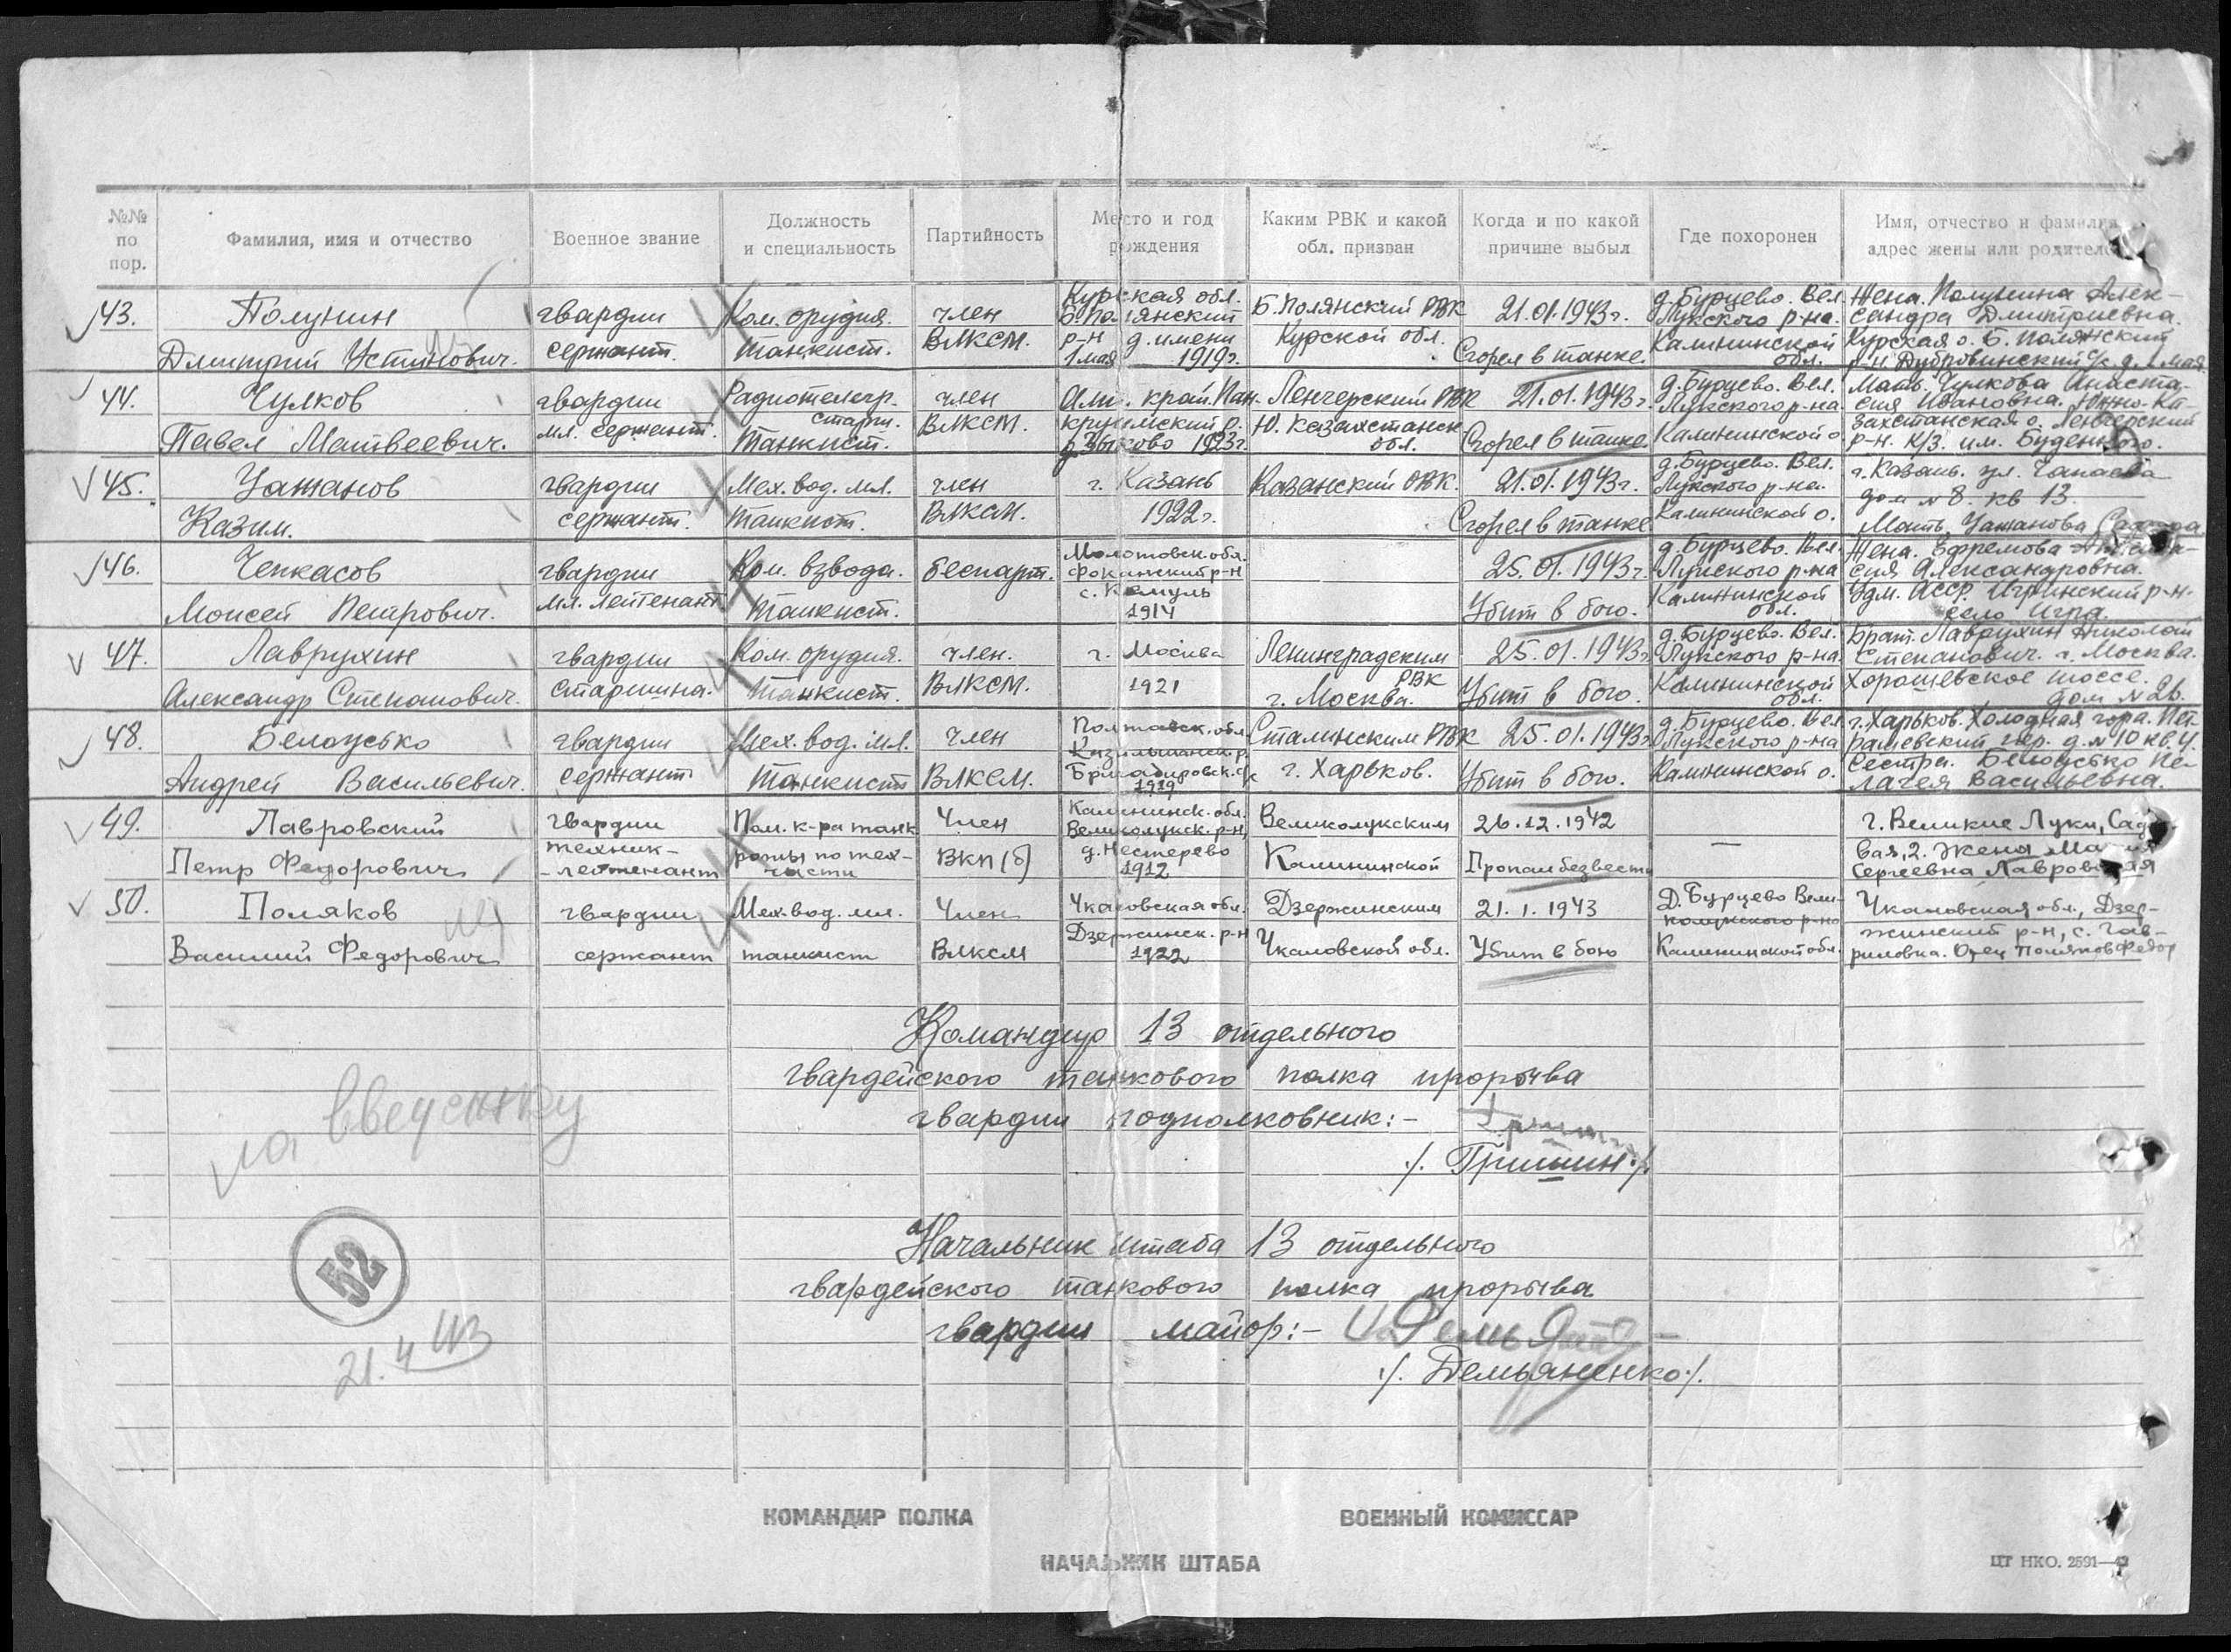 №№ по пор.
Фамилия, имя и отчество
Военное звание
Должность и специальность
Партийность
Место и год рождения
Каким РВК и какой обл. призван
Когда и по какой причине выбыл
Где похоронен
Имя, отчество и фамилия, адрес жены или родителе
43.
Полунин
Дмитрий Устинович.
гвардии
сержант.
Ком. орудия.
танкист.
член
ВЛКСМ.
Курская обл.
Б. Полянский
р-н д. имени
1 мая 1919г.
Б. Полянский РВК
Курской обл.
21.01.1943г.
Сгорел в танке.
д. Бурцево. Вел.
Лукского р-на.
Калининской
обл.
Жена. Полунина Алек-
сандра Дмитриевна.
Курская о. Б. Полянский
р-н. Дубровинский с/с д. 1 мая.
44.
Чулков
Павел Матвеевич.
гвардии
мл. сержант.
Радиотелегр.
старш.
танкист.
член
ВЛКСМ.
Алт. край. Пан-
крушиский р.
д. Зыково 1923г.
Ленгерский РВК
Ю. Казахстанск
обл.
21.01.1943г.
Сгорел в танке
д. Бурцево. Вел.
Лукского р-на
Калининской о.
Мать. Чулкова Анаста-
сия Ивановна. Южно-Ка-
захстанская о. Ленгерский
р-н. к/з. им. Буденного.
45.
Уажанов
Казим.
гвардии
сержант.
Мех. вод. мл.
танкист.
член
ВЛКСМ.
г. Казань
1922г.
Казанский ОВК.
21.01.1943г.
Сгорел в танке
д. Бурцево. Вел.
Лукского р-на.
Калининской о.
г. Казань. ул. Чапаева
дом №8. кв 13.
Мать. Уажанова
46.
Чепкасов
Моисей Петрович.
гвардии
мл. лейтенант
Ком. взвода.
танкист.
беспарт.
Молотовск. обл.
Фокинский р-н
с.
1914
25.01.1943г.
Убит в бою.
д. Бурцево. Вел.
Лукского р-на
Калининской
обл.
Жена. Ефремова
сия Александровна.
Удм. АССР. Игринский р-н.
село Игра.
47.
Лаврухин
Александр Степанович.
гвардии
старшина.
Ком. орудия.
танкист.
член.
ВЛКСМ.
г. Москва
1921
Ленинградским
РВК
г. Москва.
25.01.1943г
Убит в бою.
д. Бурцево. Вел.
Лукского р-на.
Калининской
обл.
Брат. Лаврухин Николай
Степанович. г. Москва.
Хорошевское шоссе.
дом № 26.
48.
Белоусько
Андрей Васильевич.
гвардии
сержант
Мех. вод. мл.
танкист
член
ВЛКСМ.
Полтавск. обл
Бригадировск. с/с
1919
Сталинским РВК
г. Харьков.
25.01.1943г
Убит в бою.
д. Бурцево. Вел
Лукского р-на
Калининской о.
г. Харьков. Холодная гора. Пет-
рашевский пер. д. № 10 кв. 4.
Сестра. Белоусько Пе-
лагея Васильевна.
49.
Лавровский
Петр Федорович
гвардии
техник-
-лейтенант
Пом. к-ра танк
роты по тех-
части
Член
ВКП(б)
Калининск. обл.
Великолукск. р-н,
д. Нестерево
1912
Великолукским
Калининской
26.12.1942
Пропал без вести
—
г. Великие Луки,
вая, 2. Жена
Сергеевна Лавровская
50.
Поляков
Василий Федорович
гвардии
сержант
Мех. вод. мл.
танкист
Член
ВЛКСМ
Чкаловская обл.
Дзержинск. р-н
1922
Дзержинским
Чкаловской обл.
21.1.1943
Убит в бою
Д. Бурцево Вели-
колукского р-на
Калининской обл.
Чкаловская обл., Дзер-
жинский р-н, с. Гав-
риловка. Отец Поляков Федор
Командир 13 отдельного
гвардейского танкового полка прорыва
гвардии подполковник:-
/. Гришин./.
Начальник штаба 13 отдельного
гвардейского танкового полка прорыва
гвардии майор:-
/. Демьяненко./.
52
21.4
КОМАНДИР ПОЛКА
ВОЕННЫЙ КОМИССАР
НАЧАЛЬНИК ШТАБА
ЦТ НКО. 2591—42